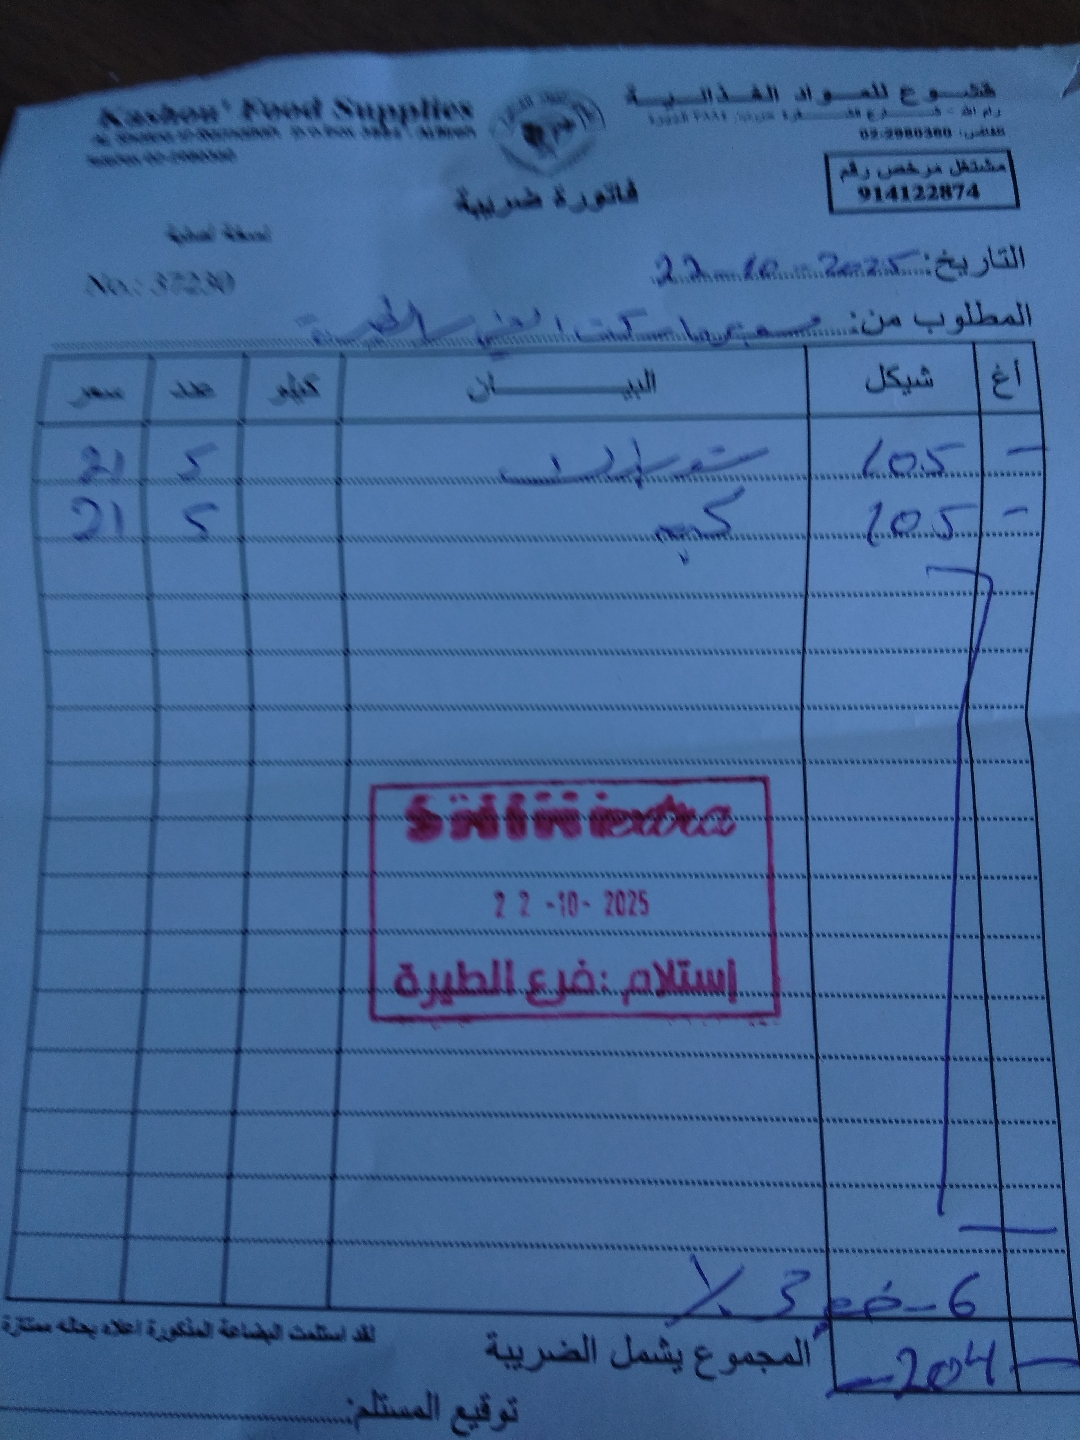 Kashou' Food Supplies
قشوع للمواد الغذائية
تلفن: 02-2980380
مشتغل مرخص رقم
914122874
فاتورة ضريبية
نسخة اصلية
No.: 37230
التاريخ: 22-10-2025
المطلوب من: سوبر ماركت الطيرة
أغ شيكل البيـــان كيلو عدد سعر
- 105 5 21
- 105 5 21
extra
22-10-2025
إستلام: فرع الطيرة
6- خصم 3%
لقد استلمت البضاعة المذكورة اعلاه بحاله ممتازة
المجموع يشمل الضريبة 204
توقيع المستلم: